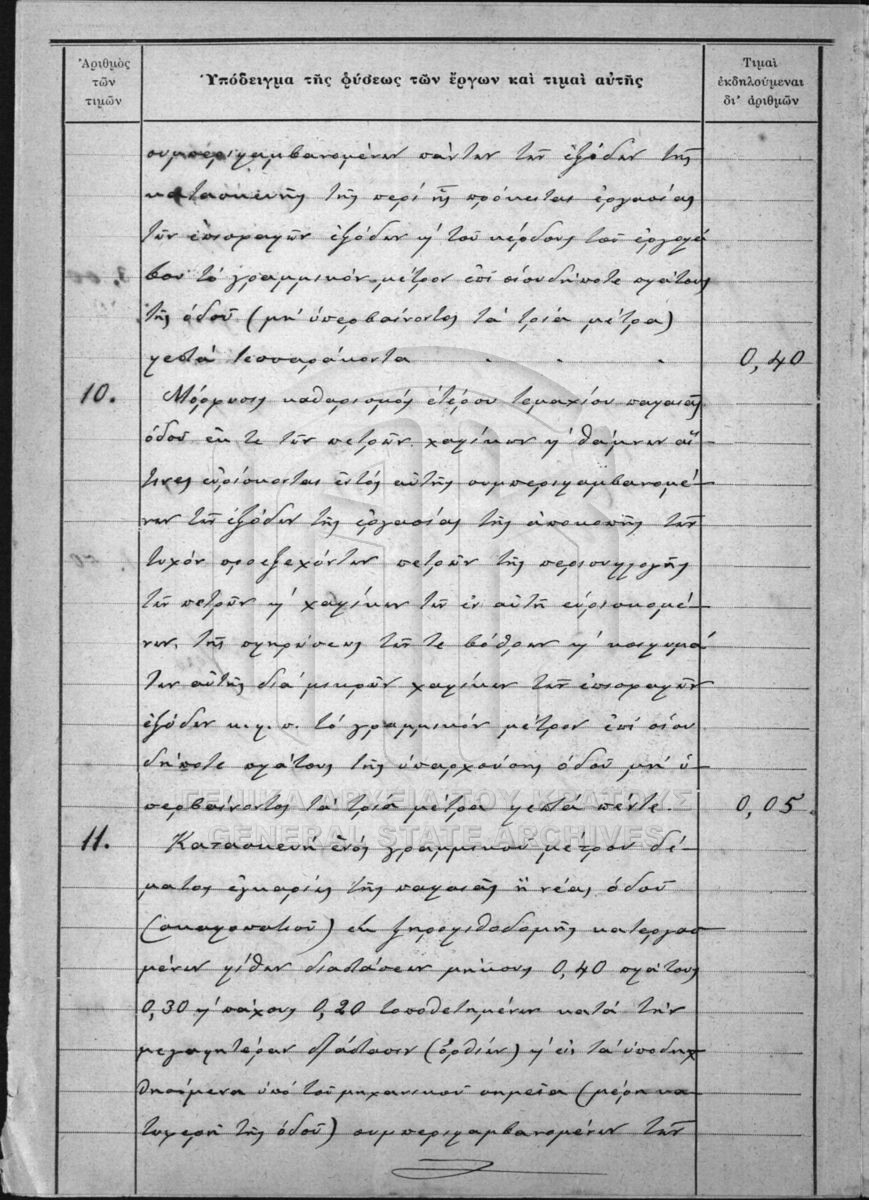 Ἀριθμὸς
τῶν
τιμῶν
Ὑπόδειγμα τῆς φύσεως τῶν ἔργων καὶ τιμαὶ αὐτῆς
Τιμαὶ
ἐκδηλούμεναι
δι' ἀριθμῶν
συμπεριλαμβανομένων πάντων τῶν ἐξόδων τῆς
κατασκευῆς τῆς περὶ ἧς πρόκειται ἐργασίας
τῶν ἐπισφαλῶν ἐξόδων κ' τοῦ κέρδους τοῦ ἐργολά
βου τὸ γραμμικὸν μέτρον ἐπὶ οἱουδήποτε πλάτους
τῆς ὁδοῦ (μὴ ὑπερβαίνοντος τὰ τρία μέτρα)
λεπτὰ τεσσαράκοντα . . . .
0,40
10.
Μόρφωσις καθαρισμὸς ἑτέρου τεμαχίου παλαιᾶς
ὁδοῦ ἔκ τε τῶν πετρῶν χαλίκων κ' θάμνων αἵ-
τινες εὑρίσκονται ἐντὸς αὐτῆς συμπεριλαμβανομέ-
νων τῶν ἐξόδων τῆς ἐργασίας τῆς ἀποκοπῆς τῶν
τυχὸν προεξεχόντων πετρῶν τῆς περισυλλογῆς
τῶν πετρῶν κ' χαλίκων τῶν ἐν αὐτῇ εὑρισκομέ-
νων, τῆς πληρώσεως τῶν τε βόθρων κ' κοιλωμά
των αὐτῆς διὰ μικρῶν χαλίκων τῶν ἐπισφαλῶν
ἐξόδων κ.λ.π. τὸ γραμμικὸν μέτρον ἐπὶ οἱου
δήποτε πλάτους τῆς ὑπαρχούσης ὁδοῦ μὴ ὑ-
περβαίνοντος τὰ τρία μέτρα λεπτὰ πέντε.
0,05.
11.
Κατασκευὴ ἑνὸς γραμμικοῦ μέτρου δέ-
ματος ἐγκαρσίως τῆς παλαιᾶς ἢ νέας ὁδοῦ
(σκαλοπατιοῦ) ἐκ ξηρολιθοδομῆς κατεργασ
μένων λίθων διαστάσεων μήκους 0,40 πλάτους
0,30 κ' πάχους 0,20 τοποθετημένων κατὰ τὴν
μεγαλητέραν διάστασιν (ὀρθίων) κ' εἰς τὰ ὑποδειχ
θησόμενα ὑπὸ τοῦ μηχανικοῦ σημεῖα (μέρη κα
τωφερῆ τῆς ὁδοῦ) συμπεριλαμβανομένων τῶν
ΓΕΝΙΚΑ ΑΡΧΕΙΑ ΤΟΥ ΚΡΑΤΟΥΣ
GENERAL STATE ARCHIVES